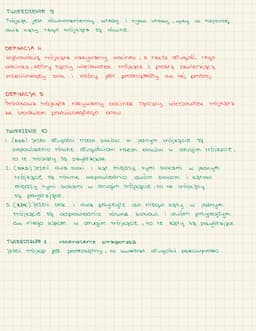 TWIERDZENIE 9
Trójkąt jest równoramienny wtedy i tylko wtedy, gdy co najmniej
dwa kąty tego trójkąta są równe.
DEFINICJA 4
Wysokością trójkąta nazywamy odcinek, a także długość tego
odcinka, który łączy wierzchołek trójkąta z prostą zawierającą
przeciwległy bok i który jest prostopadły do tej prostej.
DEFINICJA 5
Środkową trójkąta nazywamy odcinek łączący wierzchołek trójkąta
ze środkiem przeciwległego boku.
TWIERDZENIE 10
1. (bbb) Jeżeli długości trzech boków w jednym trójkącie są
odpowiednio równe długościom trzech boków w drugim trójkącie,
to te trójkąty są przystające.
2. (bkb) Jeżeli dwa boki i kąt między tymi bokami w jednym
trójkącie są równe odpowiednio dwóm bokom i kątowi
między tymi bokami w drugim trójkącie, to te trójkąty
są przystające.
3. (kbk) Jeżeli bok i dwa przyległe do niego kąty w jednym
trójkącie są odpowiednio równe bokowi i dwóm przyległym
do niego kątom w drugim trójkącie, to te kąty są przystające.
TWIERDZENIE twierdzenie pitagorasa
Jeżeli trójkąt jest prostokątny, to kwadrat długości przeciwprost